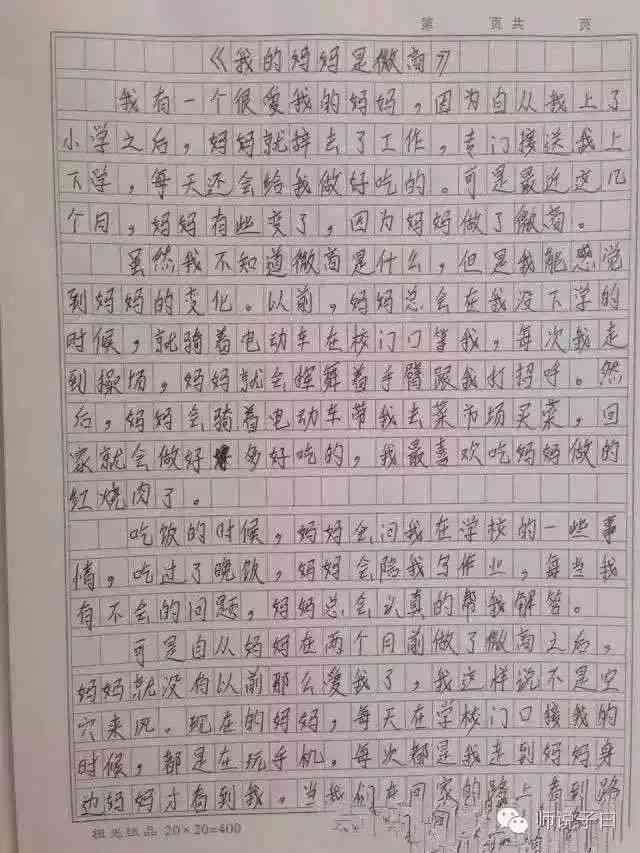 第 页共 页
《我的妈妈是微商》
我有一个很爱我的妈妈，因为自从我上了
小学之后，妈妈就辞去了工作，专门接送我上
下学，每天还会给我做好吃的。可是最近这几
个月，妈妈有些变了，因为妈妈做了微商。
虽然我不知道微商是什么，但是我能感觉
到妈妈的变化。以前，妈妈总会在我没下学的
时候，就骑着电动车在校门口等我，每次我走
到操场，妈妈就会挥舞着手臂跟我打招呼。然
后，妈妈会骑着电动车带我去菜市场买菜，回
家就会做好多好吃的，我最喜欢吃妈妈做的
红烧肉了。
吃饭的时候，妈妈会问我在学校的一些事
情，吃过了晚饭，妈妈会陪我写作业，每当我
有不会的问题，妈妈总会认真的帮我解答。
可是自从妈妈在两个月前做了微商之后，
妈妈就没有以前那么爱我了，我这样说不是空
穴来风。现在的妈妈，每天在学校门口接我的
时候，都是在玩手机。每次都是我走到妈妈身
边妈妈才看到我。当我们在回家的路上看到路
极光纸品 20×20=400
师说子曰